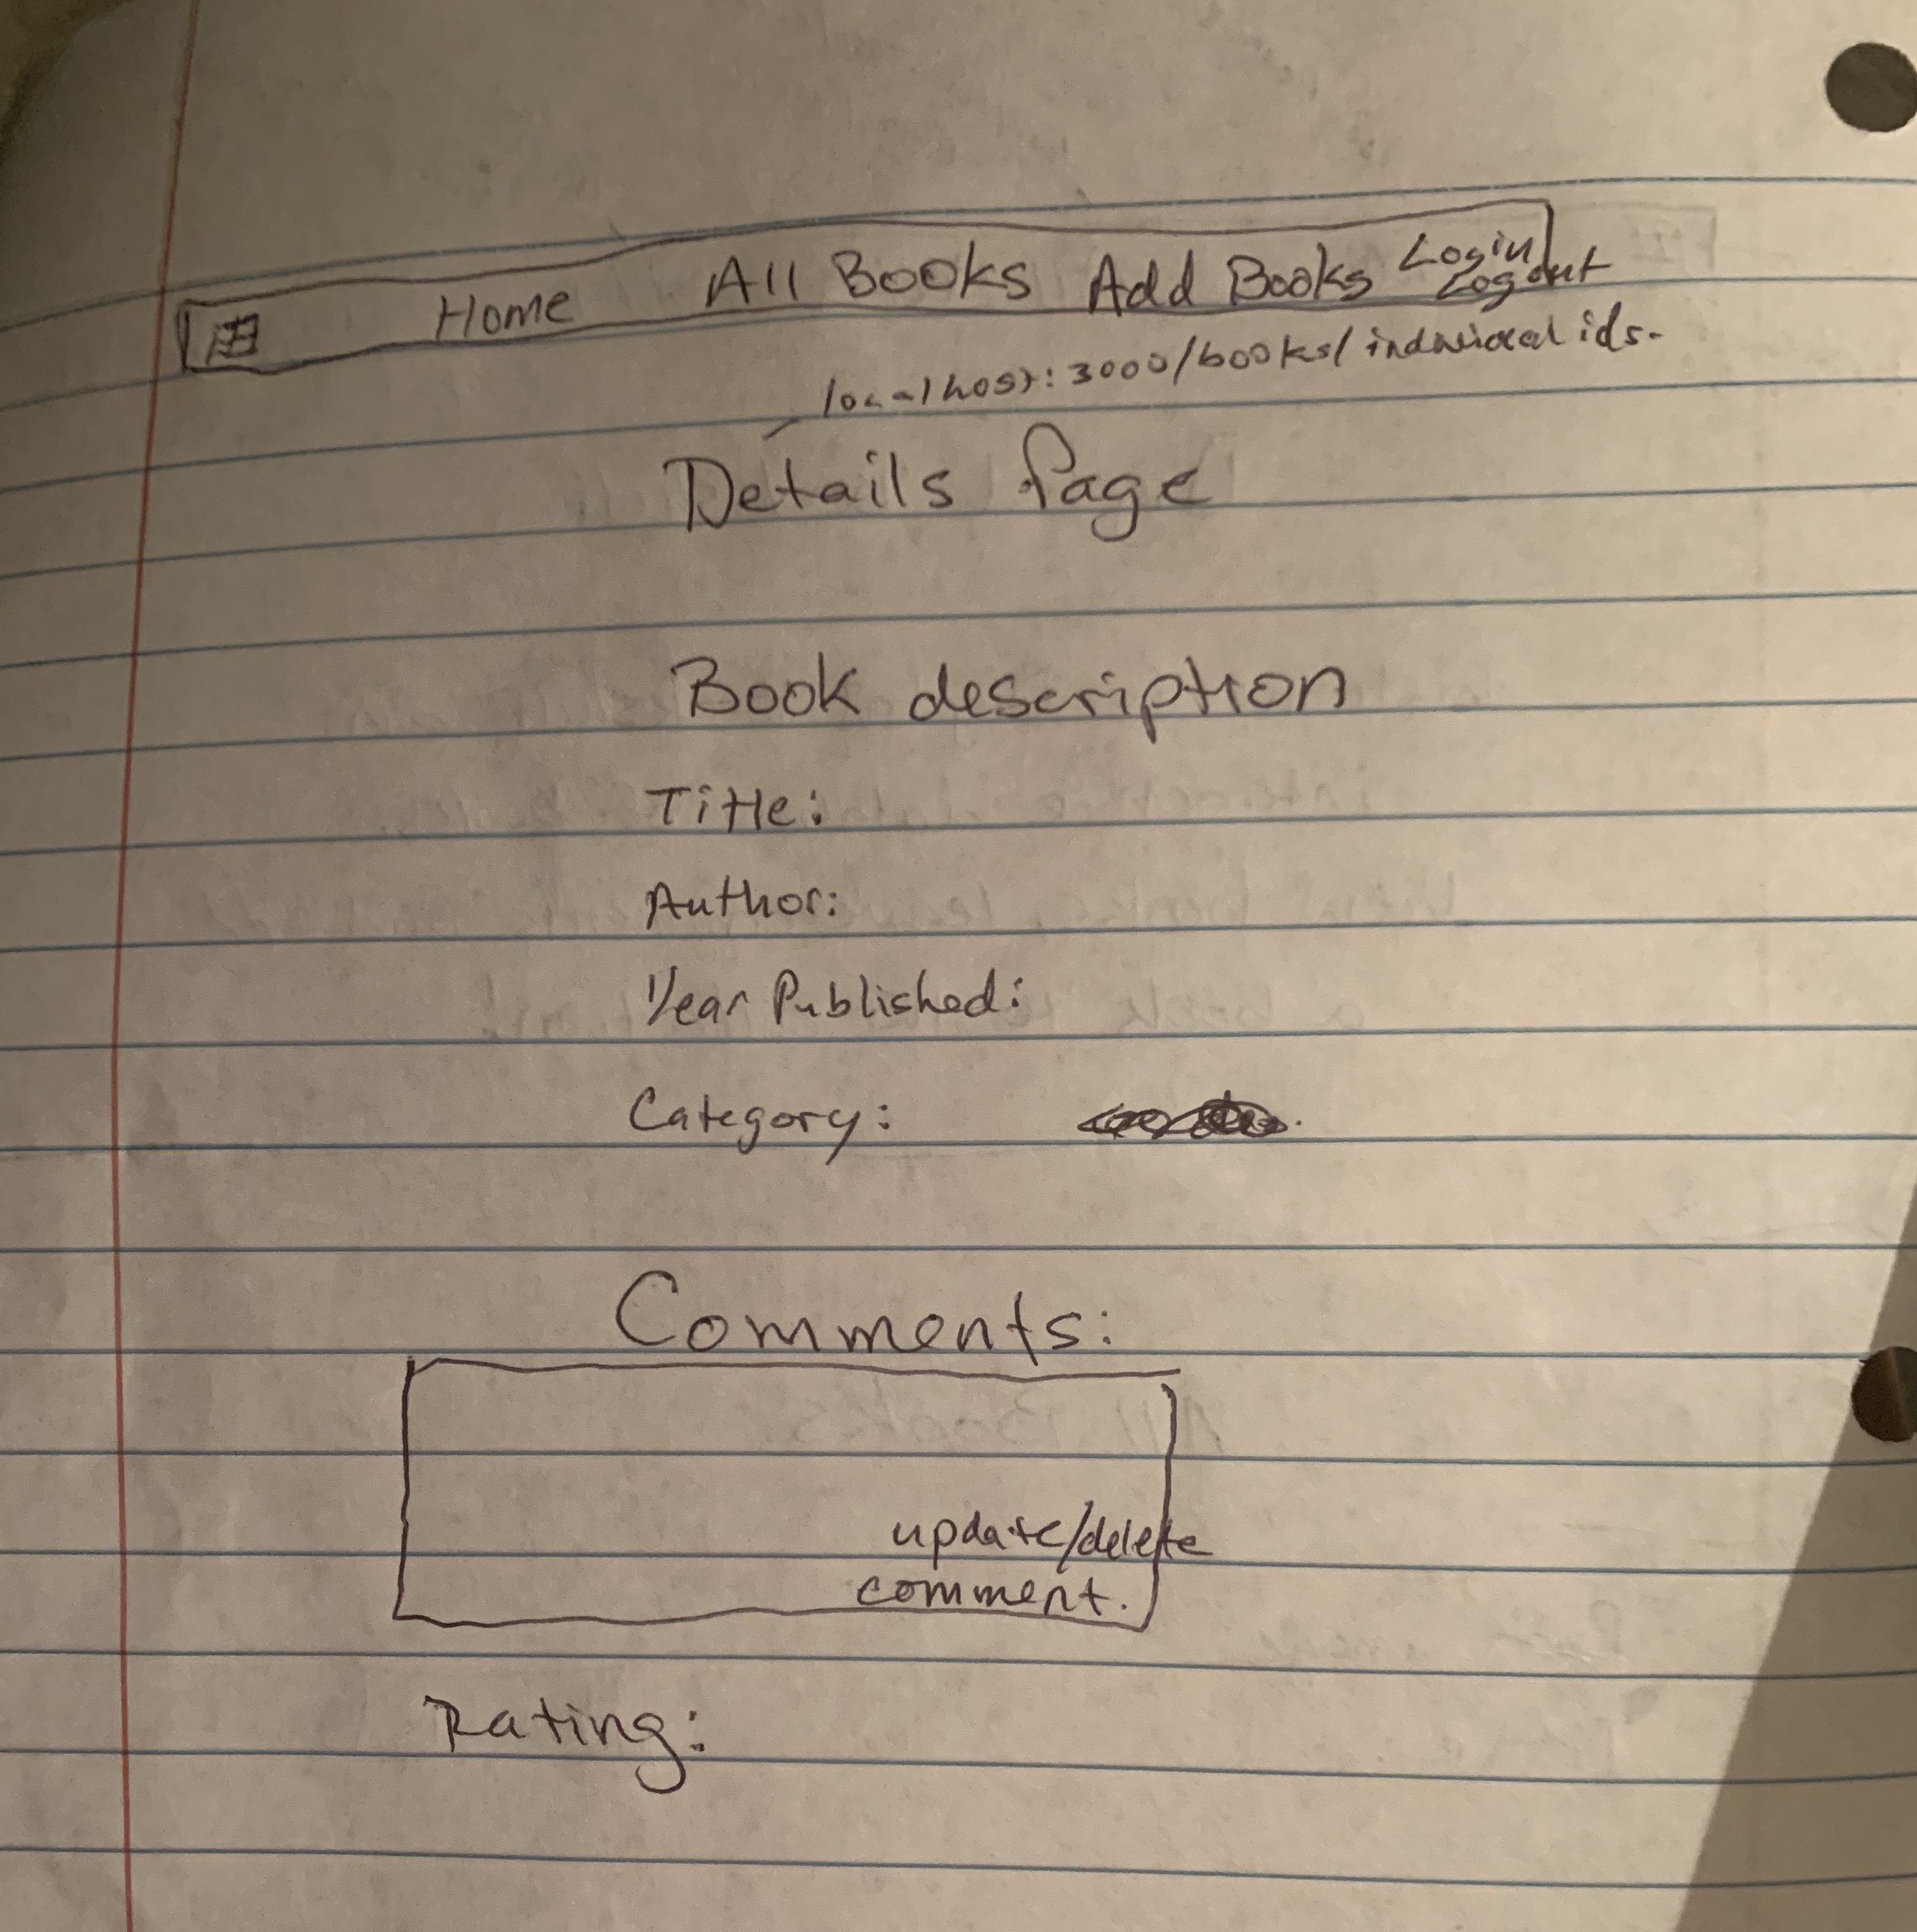 Home All Books Add Books Login
Logout
localhost:3000/books/individual ids.
Details Page
Book description
Title:
Author:
Year Published:
Category:
Comments:
update/delete
comment.
Rating: